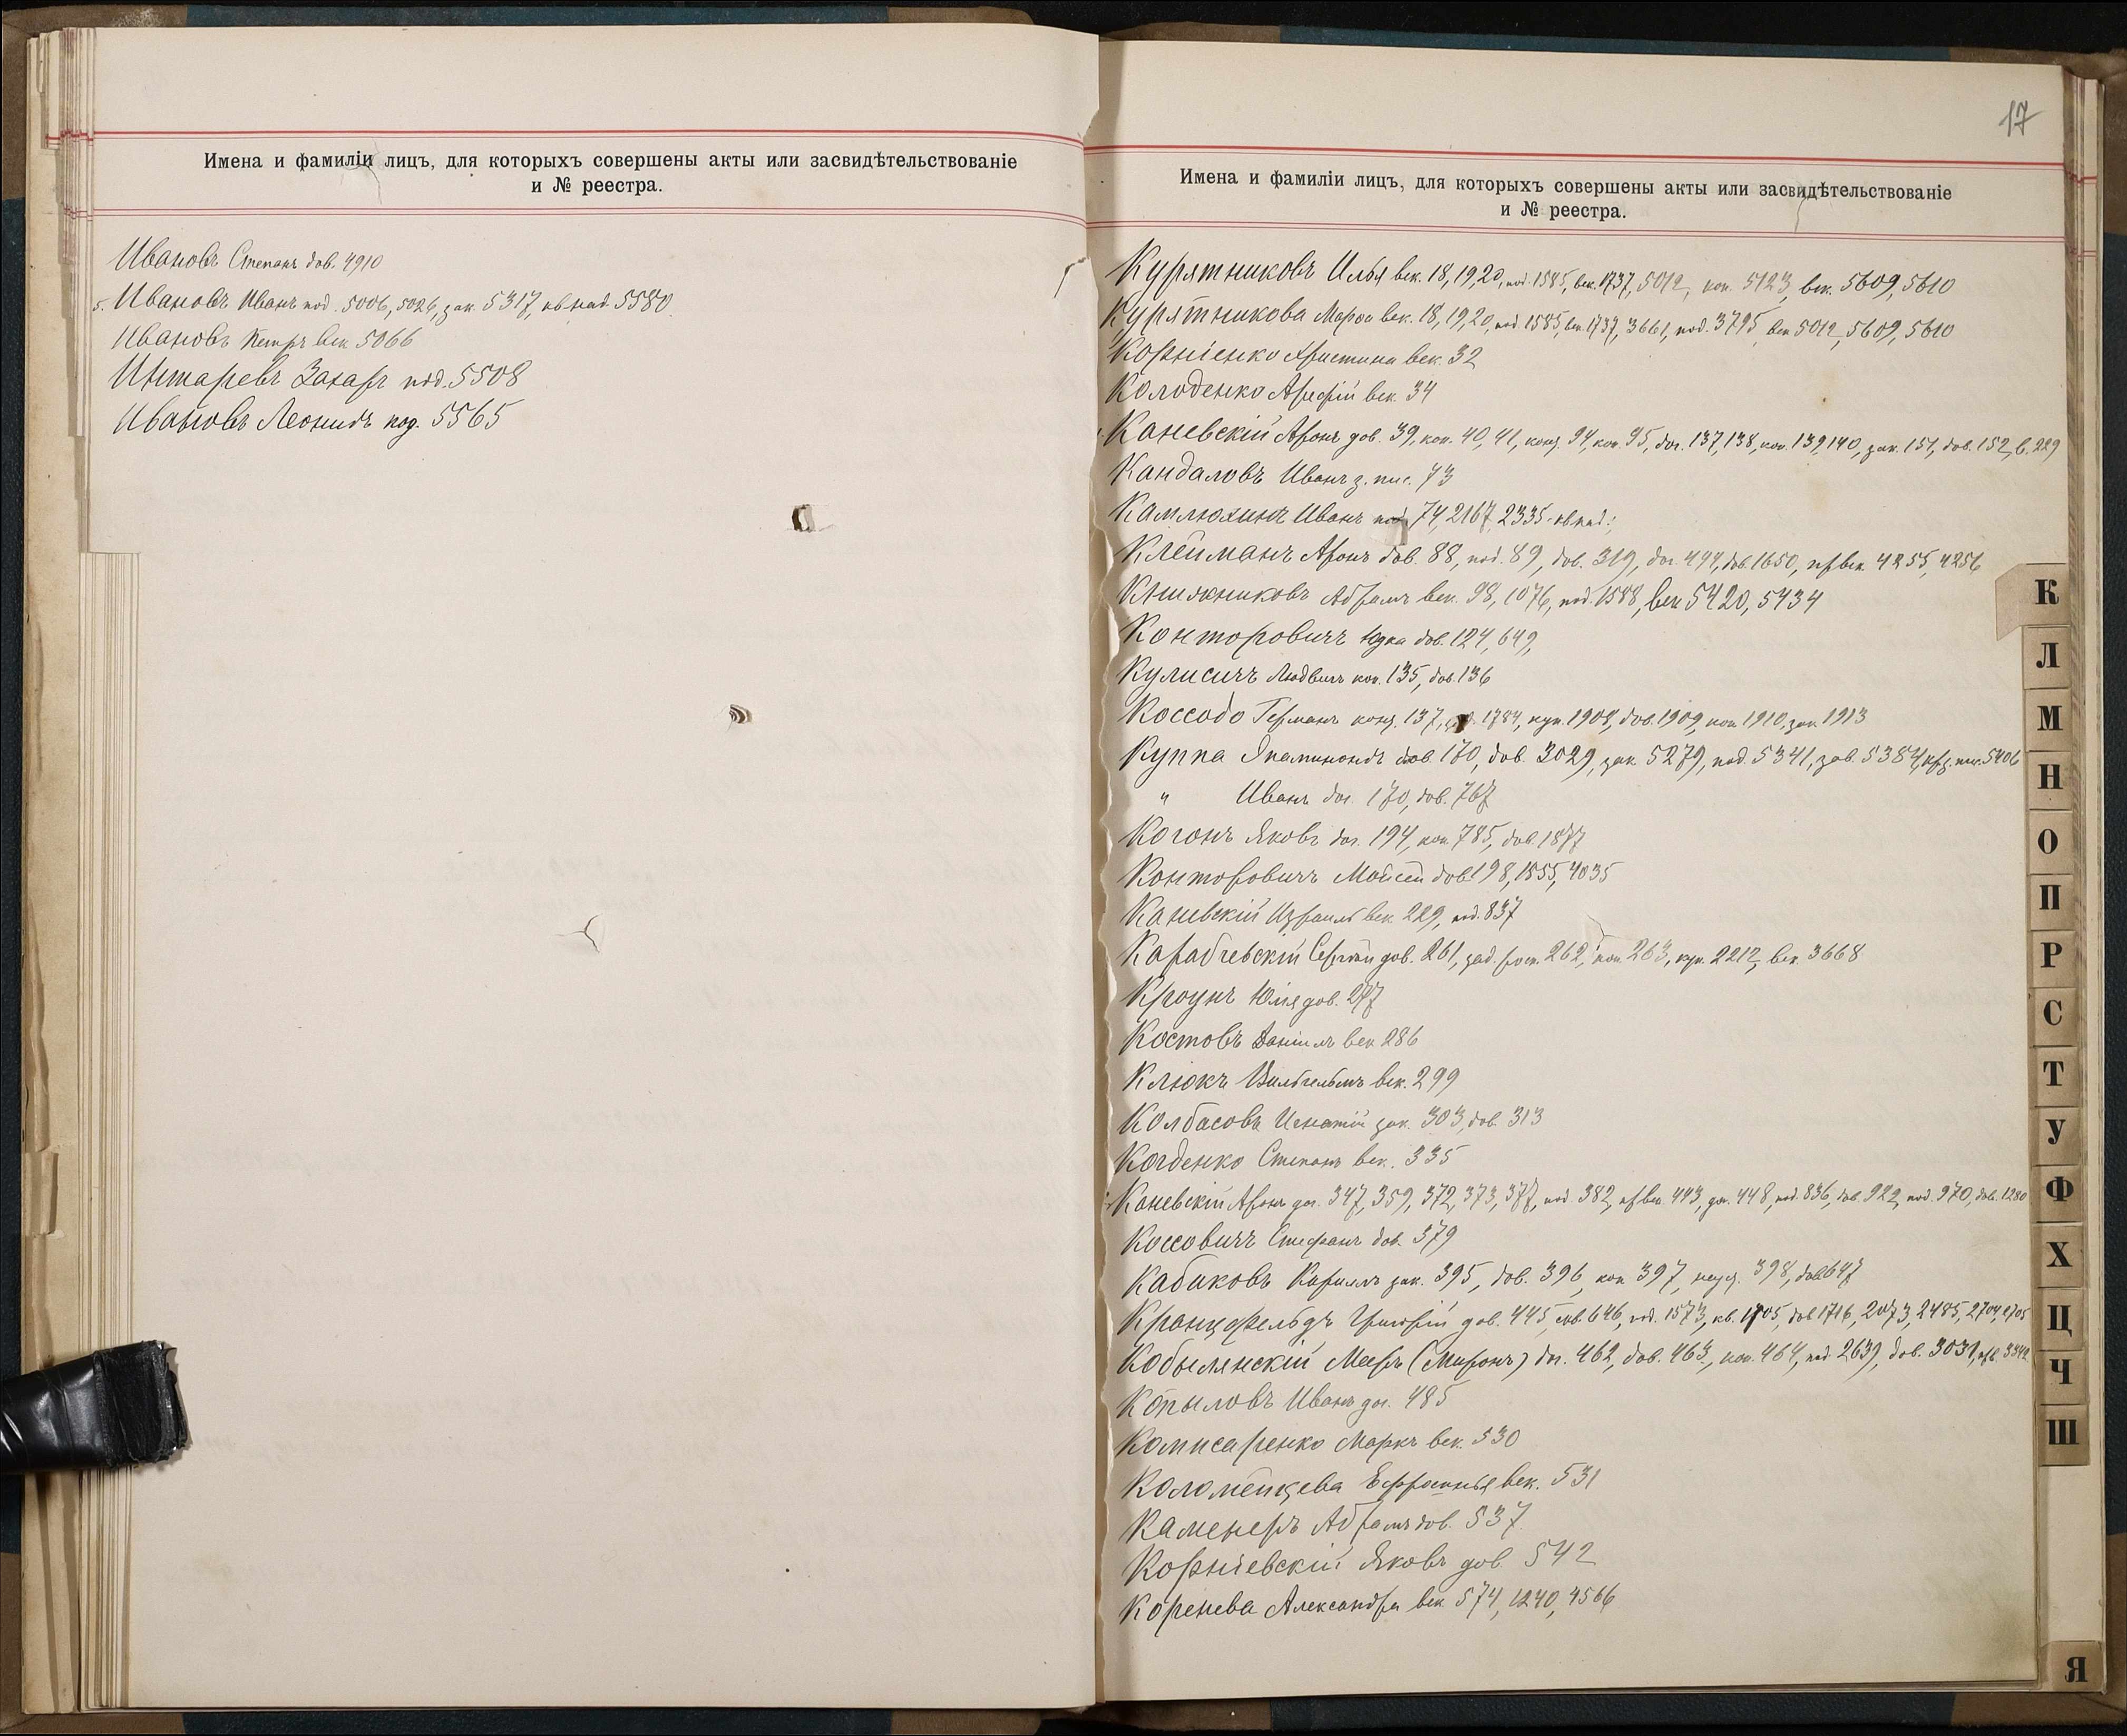 Имена и фамиліи лицъ, для которыхъ совершены акты или засвидѣтельствованіе
и № реестра.
Ивановъ Степанъ дов. 4910
5. Ивановъ Иванъ под. 5006, 5026, зак. 5317, 5580
Ивановъ Петръ век 5066
Интаревъ Захаръ под. 5508
Ивановъ Леонидъ под. 5565
17
Имена и фамиліи лицъ, для которыхъ совершены акты или засвидѣтельствованіе
и № реестра.
Курятниковъ Илья век. 18, 19, 20, под. 1585, век. 1737, 5012, коп. 5123, век. 5609, 5610
Курятникова Марѳа век. 18, 19, 20, под 1585, век 1737, 3661, под. 3795, век 5012, 5609, 5610
Корніенко Христина век. 32
Колоденко Арефій век. 34
Каневскій Аронъ дов. 39, коп. 40, 41, 94, коп. 95, дог. 137, 138, коп. 139, 140, зак. 151, дов. 152, в. 229
Кандаловъ Иванъ з. пис. 73
Камлюхинъ Иванъ под 74, 2167, 2335
Клейманъ Аронъ дов. 88, под. 89, дов. 319, дог. 494, дов. 1650, 4255, 4256
Книжниковъ Абрамъ век. 98, 1076, под. 1588, век 5420, 5434
Конторовичъ Юдка дов. 124, 649,
Кулисичъ Людвигъ коп. 135, дов. 136
Коссодо Германъ 137, 1784, куп. 1908, дов. 1909, коп 1910, зак. 1913
Куппа Эпаминондъ дов. 170, дов. 3029, зак. 5279, под. 5341, 5384, 5406
" Иванъ дог. 170, дов. 767
Коганъ Яковъ дог. 194, коп. 785, дов. 1877
Конторовичъ Мойсей дов. 198, 1855, 4035
Каневскій Израиль век. 229, под. 837
Карабчевскій Сергѣй дов. 261, зад. рос. 262, коп 263, куп. 2212, век. 3668
Кроунъ Юлія дов. 277
Костовъ Даніилъ век 286
Клюкъ Вильгельмъ век. 299
Колбасовъ Игнатій зак. 303, дов. 313
Когденко Степанъ век. 335
Каневскій Аронъ дог. 347, 359, 372, 373, 377, под 382, 443, 448, под. 836, дов. 922, под. 970, дов. 1280
Коссовичъ Стефанъ дов. 379
Кабаковъ Кириллъ зак. 395, дов. 396, коп 397, 398, дов 647
Кранцфельдъ Григорій дов. 445, 646, под. 1573, 1705, дов 1716, 2073, 2485, 2704, 2705
Кобылянскій Мееръ (Миронъ) дог. 462, дов. 463, коп. 464, под. 2639, дов. 3031,
Копыловъ Иванъ дог. 485
Комисаренко Маркъ век. 530
Коломейцева Ефросинья век. 531
Каменеръ Абрамъ дов. 537
Корніевскій Яковъ дов. 542
Коренева Александра век 574, 1240, 4566
К
Л
М
Н
О
П
Р
С
Т
У
Ф
Х
Ц
Ч
Ш
Я